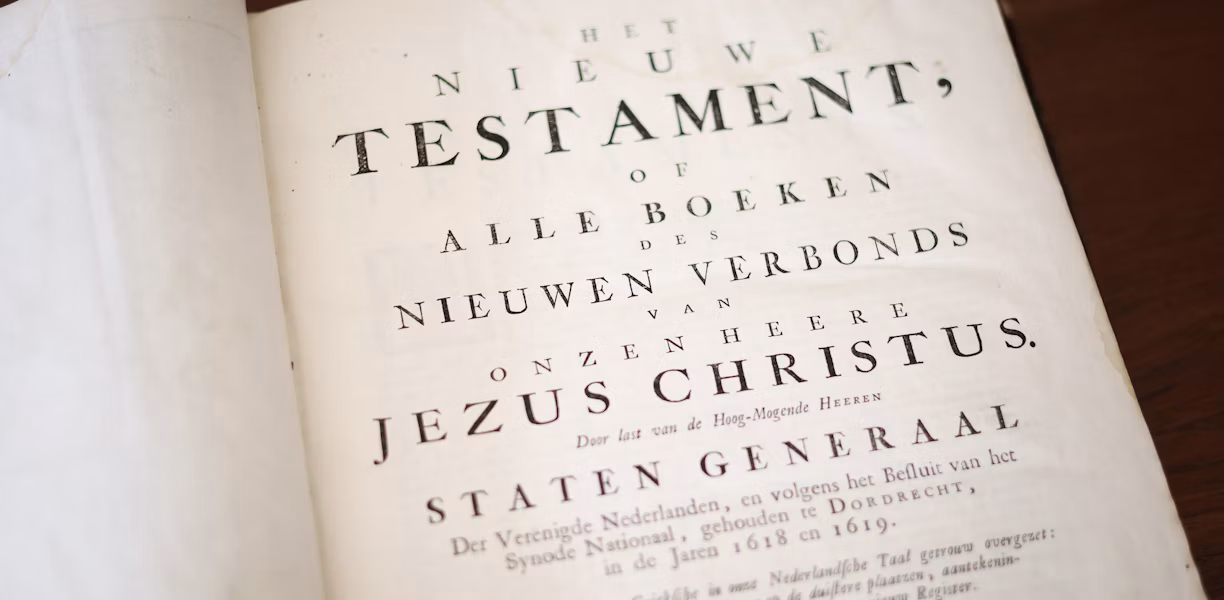 HET
NIEUWE
TESTAMENT,
OF
ALLE BOEKEN
DES
NIEUWEN VERBONDS
VAN
ONZEN HEERE
JEZUS CHRISTUS.
Door last van de Hoog-Mogende HEEREN
STATEN GENERAAL
Der Verenigde Nederlanden, en volgens het Beſluit van het
Synode Nationaal, gehouden te DORDRECHT,
in de Jaren 1618 en 1619.
in onze Nederlandſche Taal getrouw overgezet:
de duiſtere plaatzen, aantekenin-
Register.